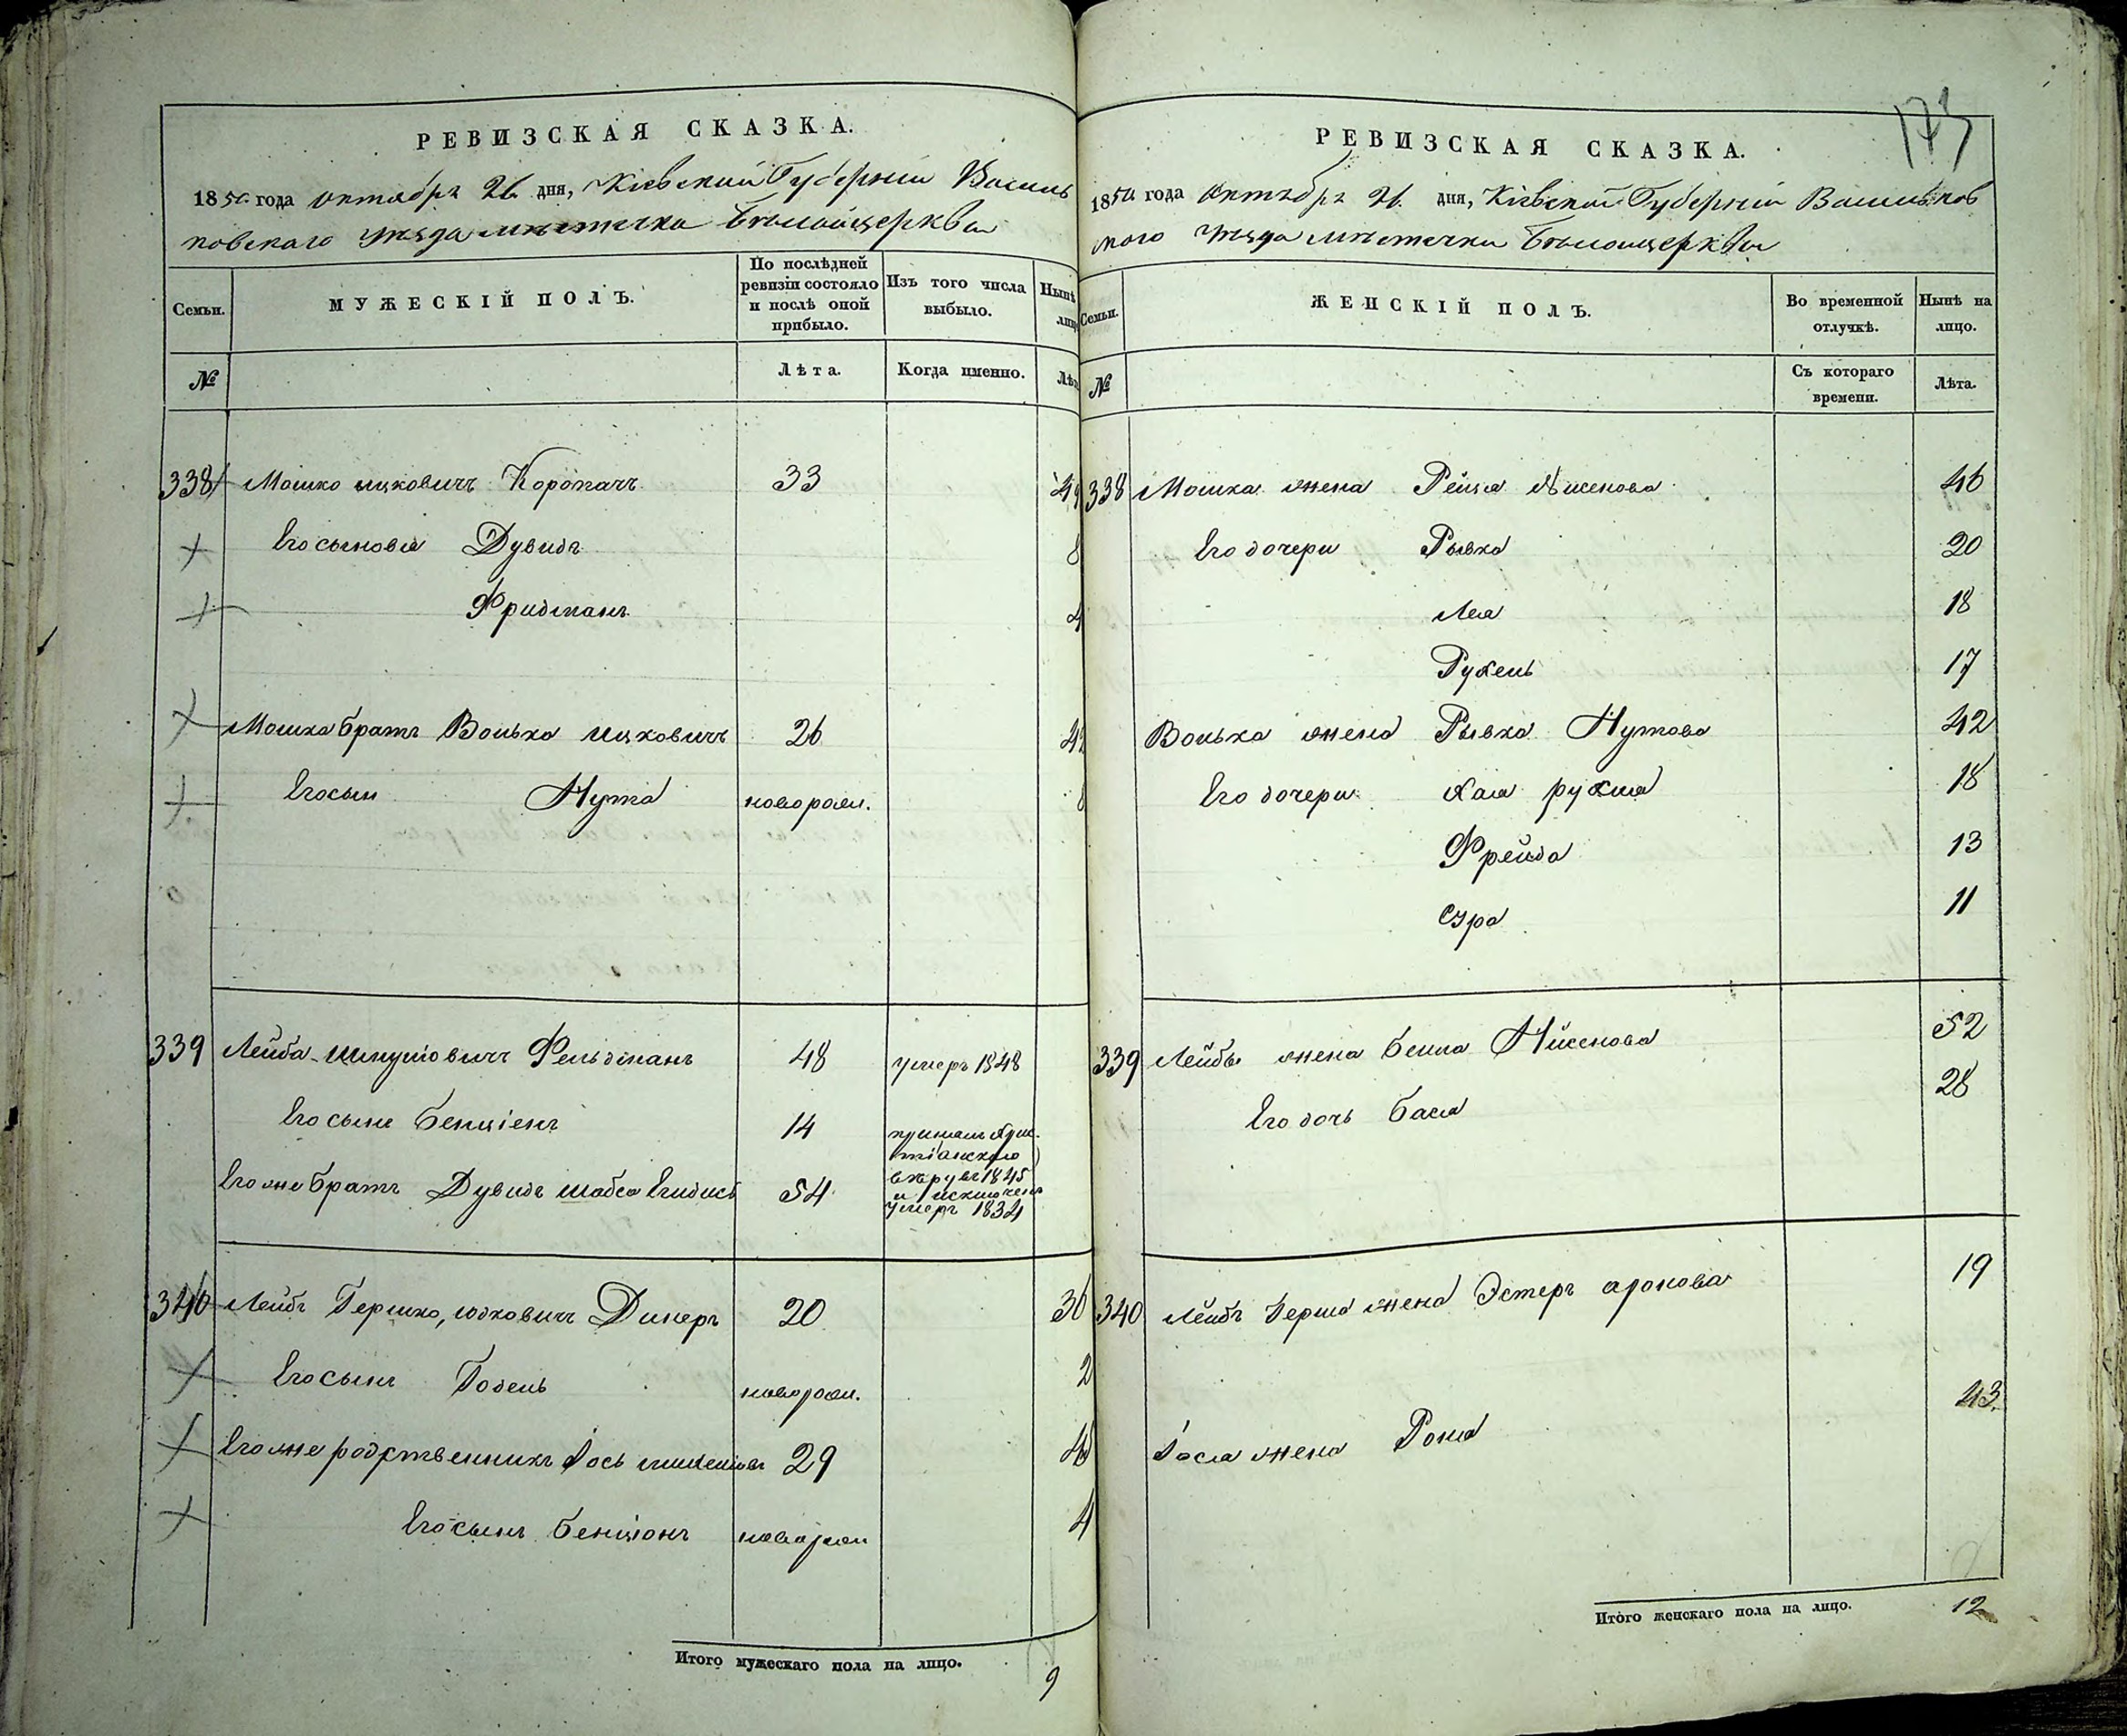 РЕВИЗСКАЯ СКАЗКА.
1850 года октября 26 дня, Кіевской Губерніи Василь
ковскаго уѣзда мѣстечка Бѣлойцеркви
Семьи. МУЖЕСКІЙ ПОЛЪ. По послѣдней ревизіи состояло и послѣ оной прибыло. Изъ того числа выбыло. Нынѣ
№ Лѣта. Когда именно.
338 Мошко ицковичъ Коротачъ 33 49
Его сыновья Дувидъ 8
Фридманъ 4
Мошка братъ Волька ицковичъ 26 42
Его сын Нута новорож. 8
339 Лейба Шмулиовичъ Фельдманъ 48 умеръ 1848
Его сынъ Бенціенъ 14 принялъ Хрис
тіанскую
вѣру въ 1845
и исключенъ
Его же братъ Дувидъ Шабса 54 умеръ 1834
340 Лейбъ Гершко, юдковичъ Динеръ 20 36
Его сынъ Годель новорож. 2
Его же родственникъ Іось 29 45
Его сынъ Бенціонъ новорож 4
Итого мужескаго пола на лицо. 9
173
РЕВИЗСКАЯ СКАЗКА.
1850 года Октября 26 дня, Кіевской Губерніи Васильков
скаго уѣзда мѣстечка Бѣлойцеркви
Семьи. ЖЕНСКІЙ ПОЛЪ. Во временной отлучкѣ. Нынѣ на лицо.
№ Съ котораго времени. Лѣта.
338 Мошка жена Рейза 46
Его дочери Рывка 20
Лея 18
Рухель 17
Волька жена Рывка Нутова 42
Его дочери Хая рухля 18
Фрейда 13
Сура 11
339 Лейбы жена Бейла Нисенова 52
Его дочь Бася 28
340 Лейбъ Герша жена Эстеръ аронова 19
Іося жена Роня 43
Итого женскаго пола на лицо. 12